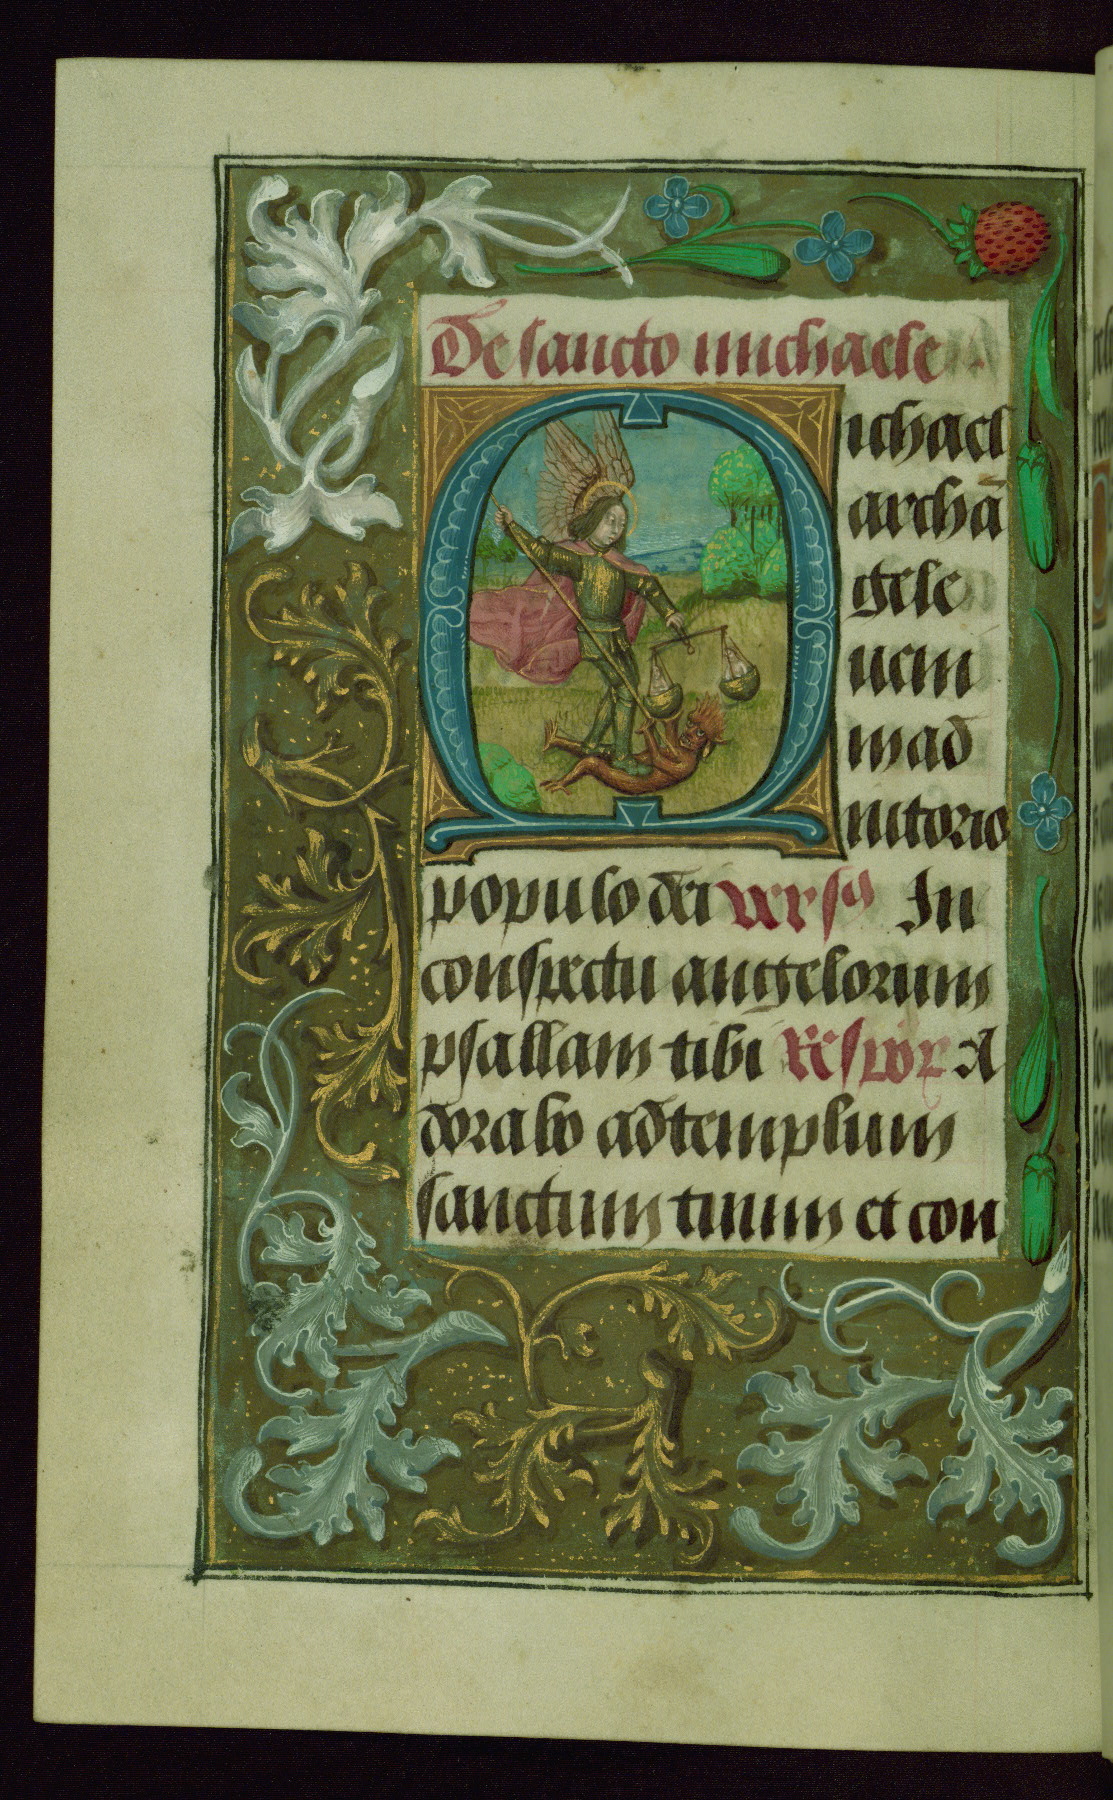 De sancto michaele
Michael
archā
gele
ueni
in ad
iutorio
populo dei versꝰ In
conspectu angelorum
psallam tibi Respoꝝ A
dorabo ad templum
sanctum tuum et con